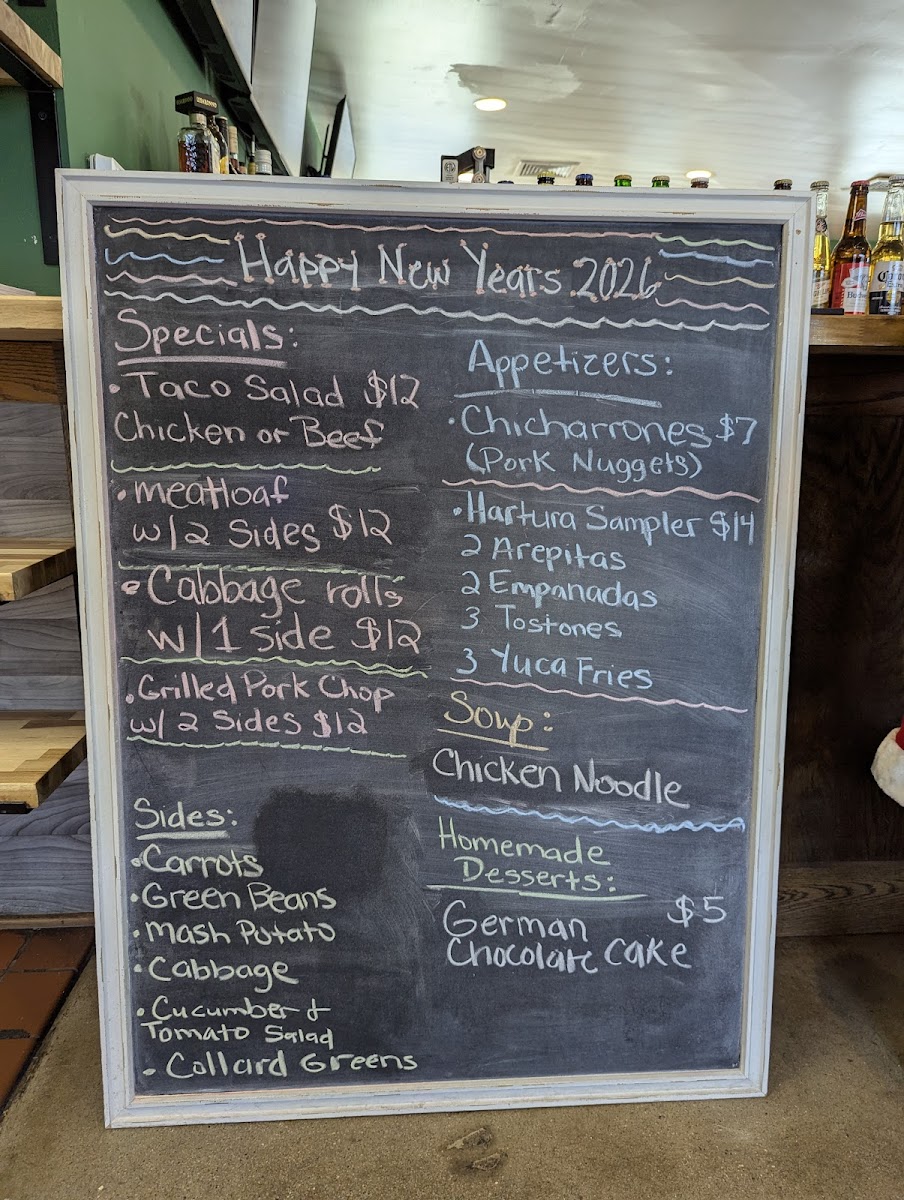 Happy New Years 2026
Specials:
• Taco Salad $12
Chicken or Beef
• meatloaf
w/2 Sides $12
• Cabbage rolls
w/1 side $12
• Grilled Pork Chop
w/2 Sides $12
Sides:
• Carrots
• Green Beans
• Mash Potato
• Cabbage
• Cucumber +
Tomato Salad
• Collard Greens
Appetizers:
• Chicharrones $7
(Pork Nuggets)
• Hartura Sampler $14
2 Arepitas
2 Empanadas
3 Tostones
3 Yuca Fries
Soup:
Chicken Noodle
Homemade
Desserts:
German $5
Chocolate Cake